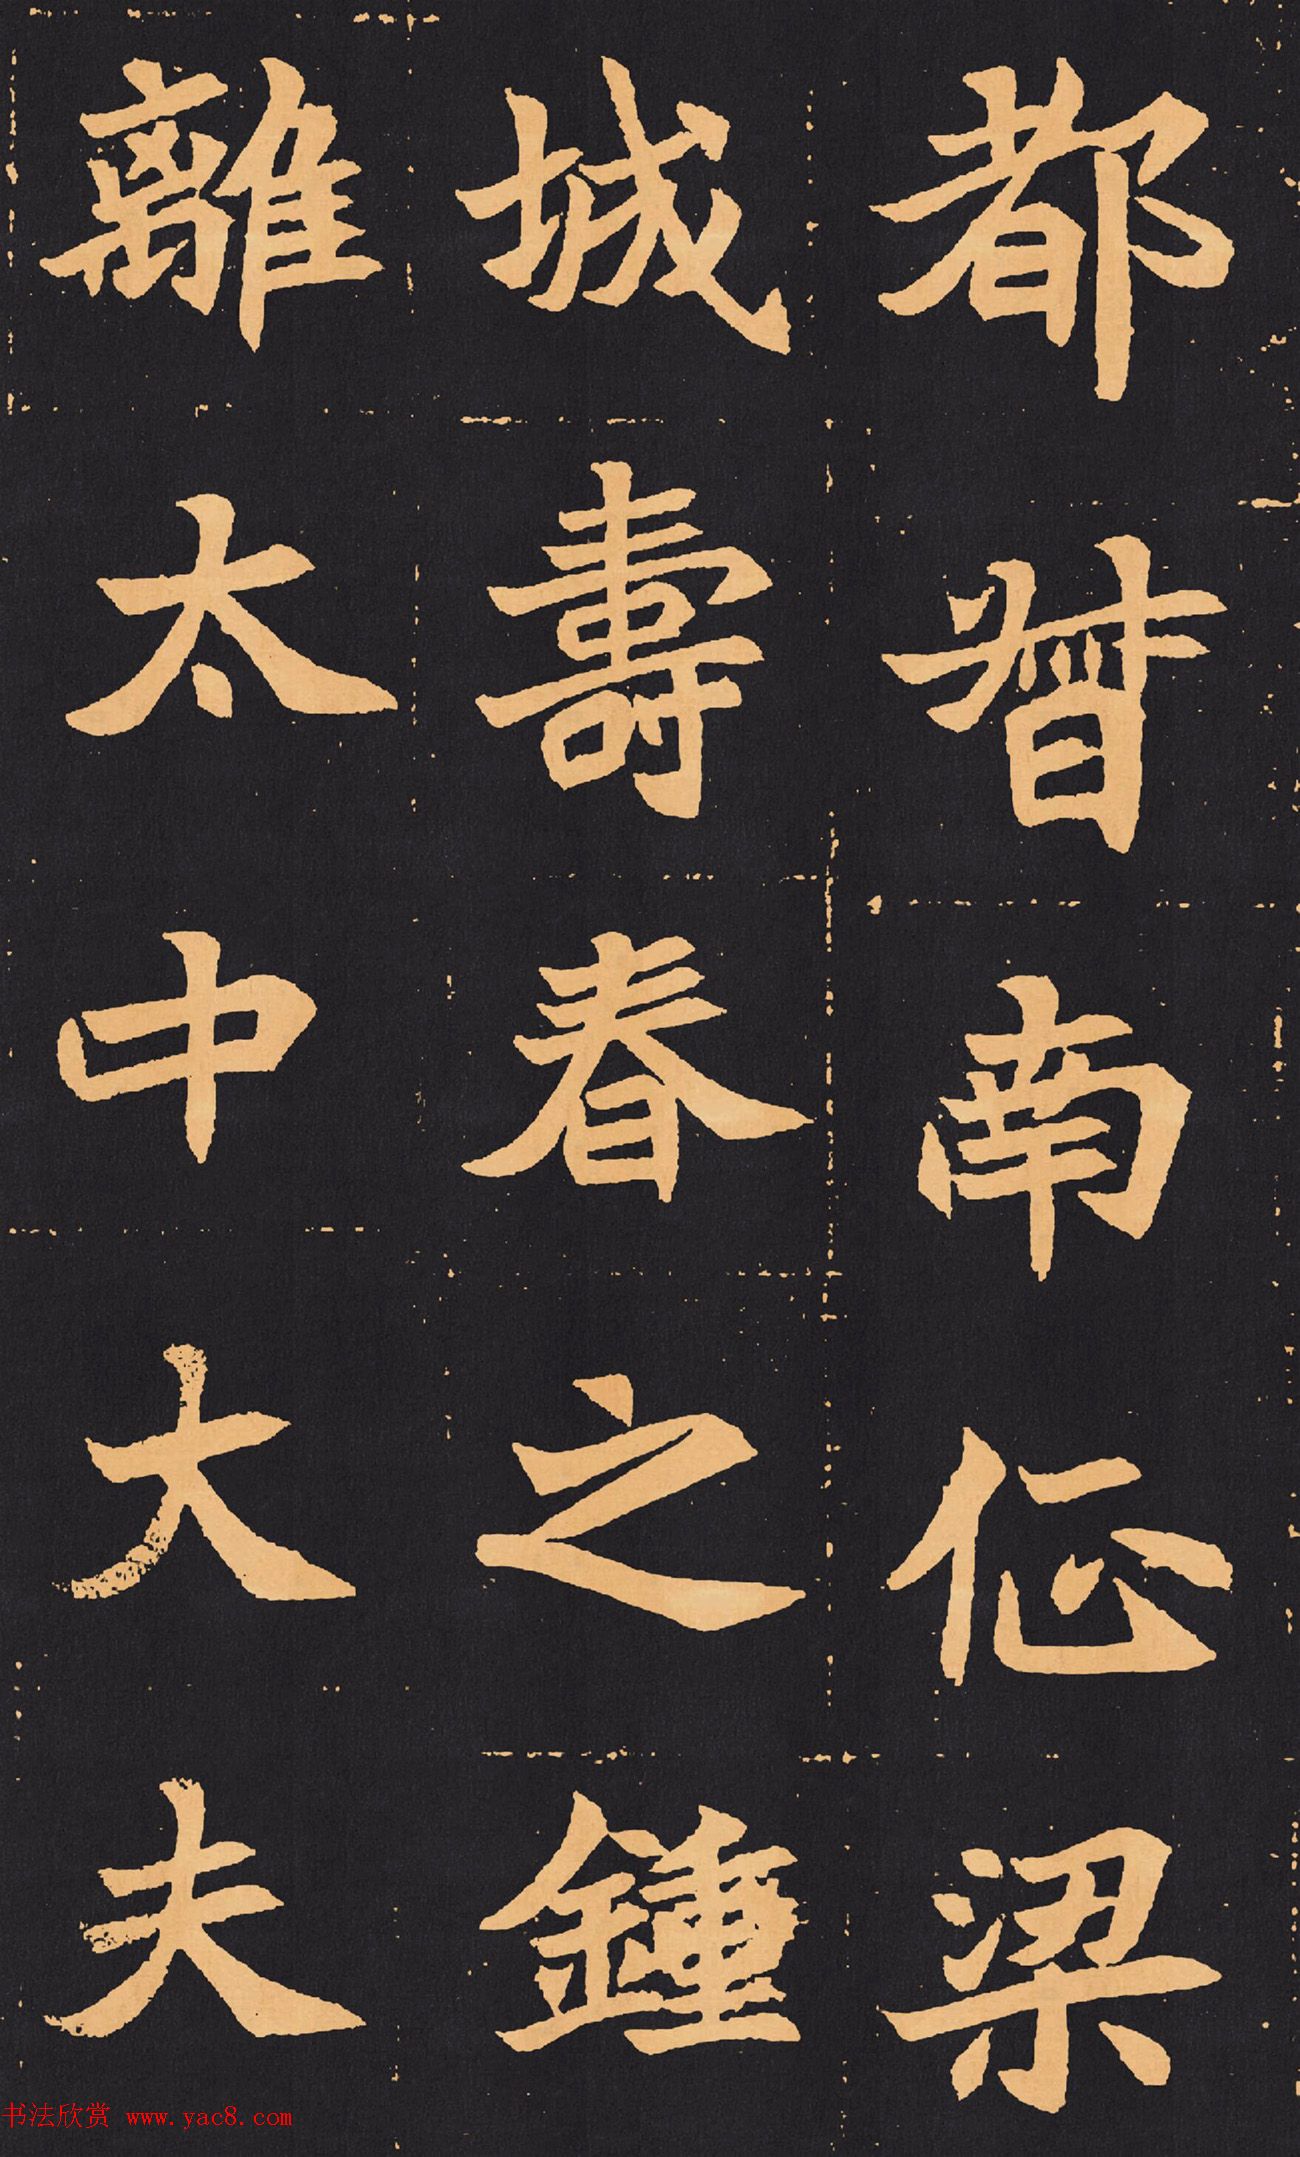 都督南征梁
城壽春之鍾
離太中大夫
书法欣赏 www.yac8.com